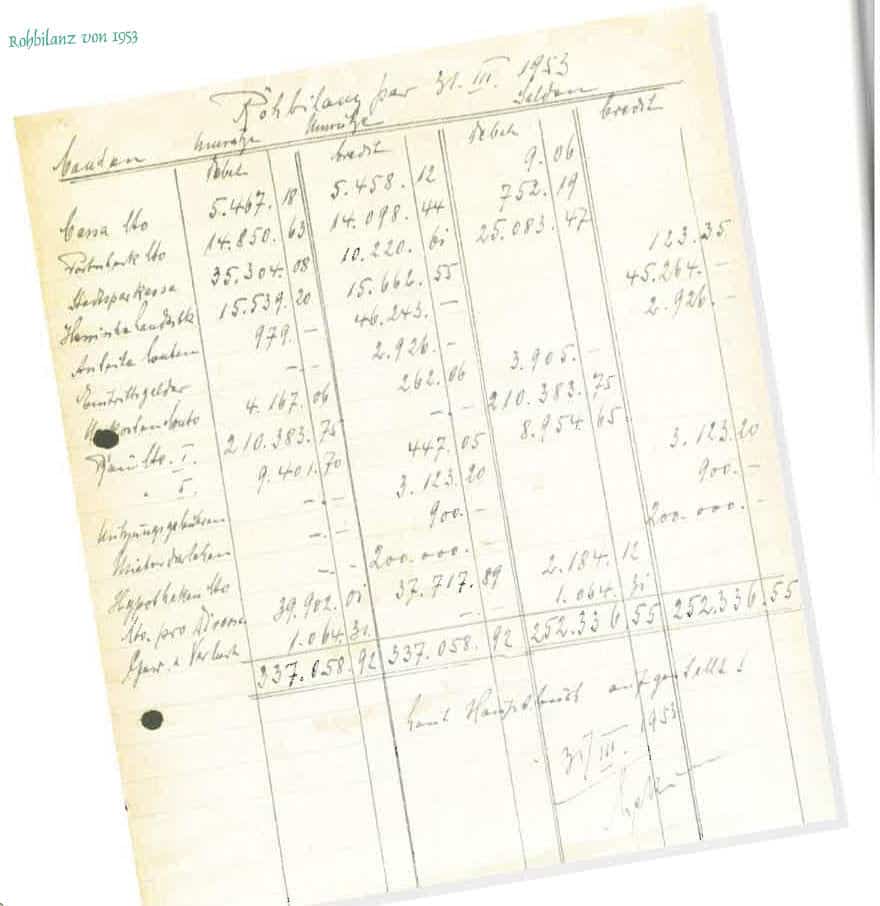 Rohbilanz von 1953
Rohbilanz per 31. III. 1953
Conten Umsätze Umsätze Salden
Debet Credit Debet Credit
Cassa Cto 5.467. 18 5.458. 12 9. 06
Postscheck Cto 14.850. 63 14.098. 44 752. 19
Stadtsparkasse 35.304. 08 10.220. 61 25.083. 47
15.539. 20 15.662. 55 123. 35
Anteile Conten 979. – 46.243. – 45.264. –
Eintrittsgelder –.– 2.926. – 2.926. –
Unkosten Conto 4.167. 06 262. 06 3.905. –
Bau Cto. I. 210.383. 75 –.– 210.383. 75
" II. 9.401. 70 447. 05 8.954. 65
Nutzungsgebühren –.– 3.123. 20 3.123. 20
Mieterdarlehen –.– 900. – 900. –
Hypotheken Cto –.– 200.000. – 200.000. –
Cto. pro Diverse 39.902. 01 37.717. 89 2.184. 12
Gew. & Verlust 1.064. 31 –.– 1.064. 31
337.058. 92 337.058. 92 252.336 55 252.336. 55
Laut Hauptbuch aufgestellt!
31/III. 1953